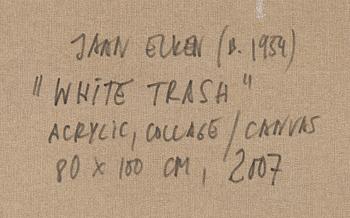 JAAN ELKEN (B. 1954)
"WHITE TRASH"
ACRYLIC, COLLAGE / CANVAS
80 X 100 CM, 2007